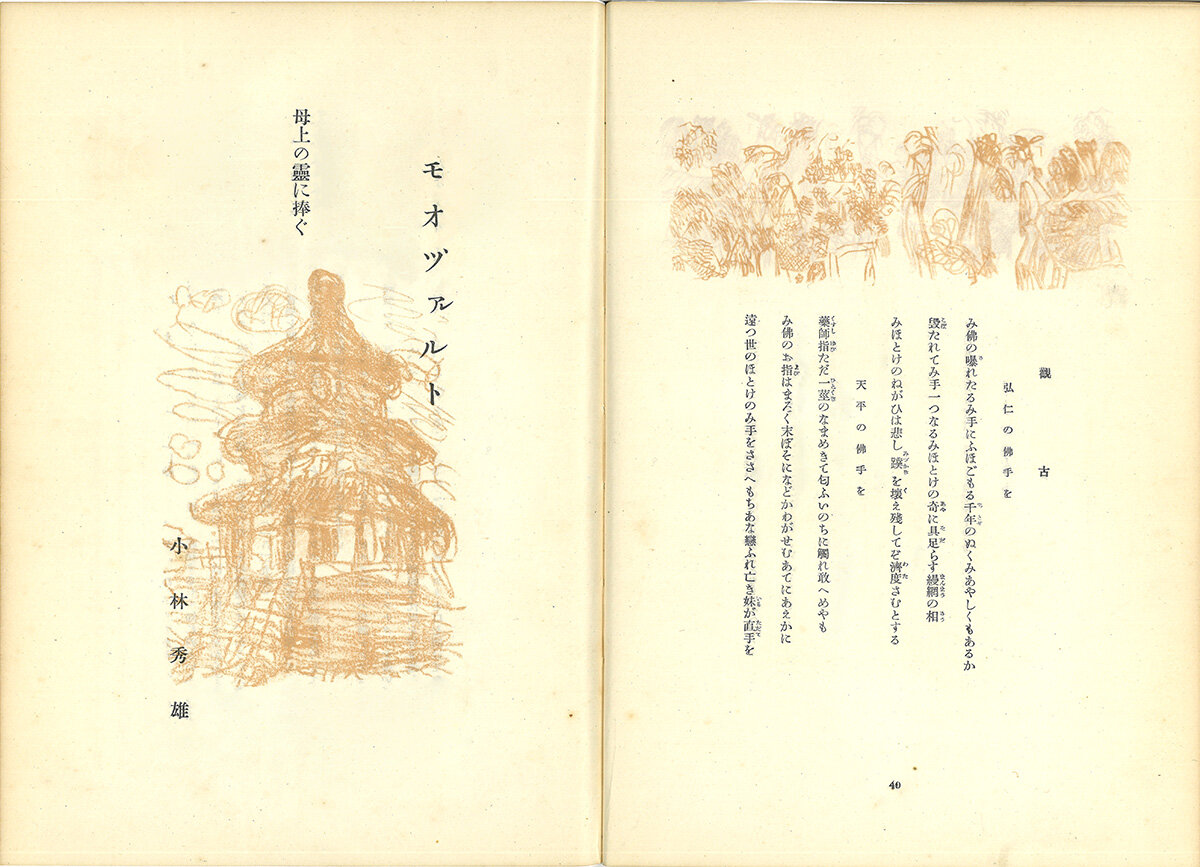 觀古
弘仁の佛手を
み佛の曝れたるみ手にふほごもる千年のぬくみあやしくもあるか
毀たれてみ手一つなるみほとけの奇に具足らす縵網の相
みほとけのねがひは悲し蹼を壞え殘してぞ濟度さむとする
天平の佛手を
藥師指ただ一莖のなまめきて匂ふいのちに觸れ敢へめやも
み佛のお指はまろく末ぼそになどかわがせむあてにあえかに
遠つ世のほとけのみ手をささへもちあな戀ふれ亡き妹が直手を
40
モオツァルト
母上の靈に捧ぐ
小林秀雄